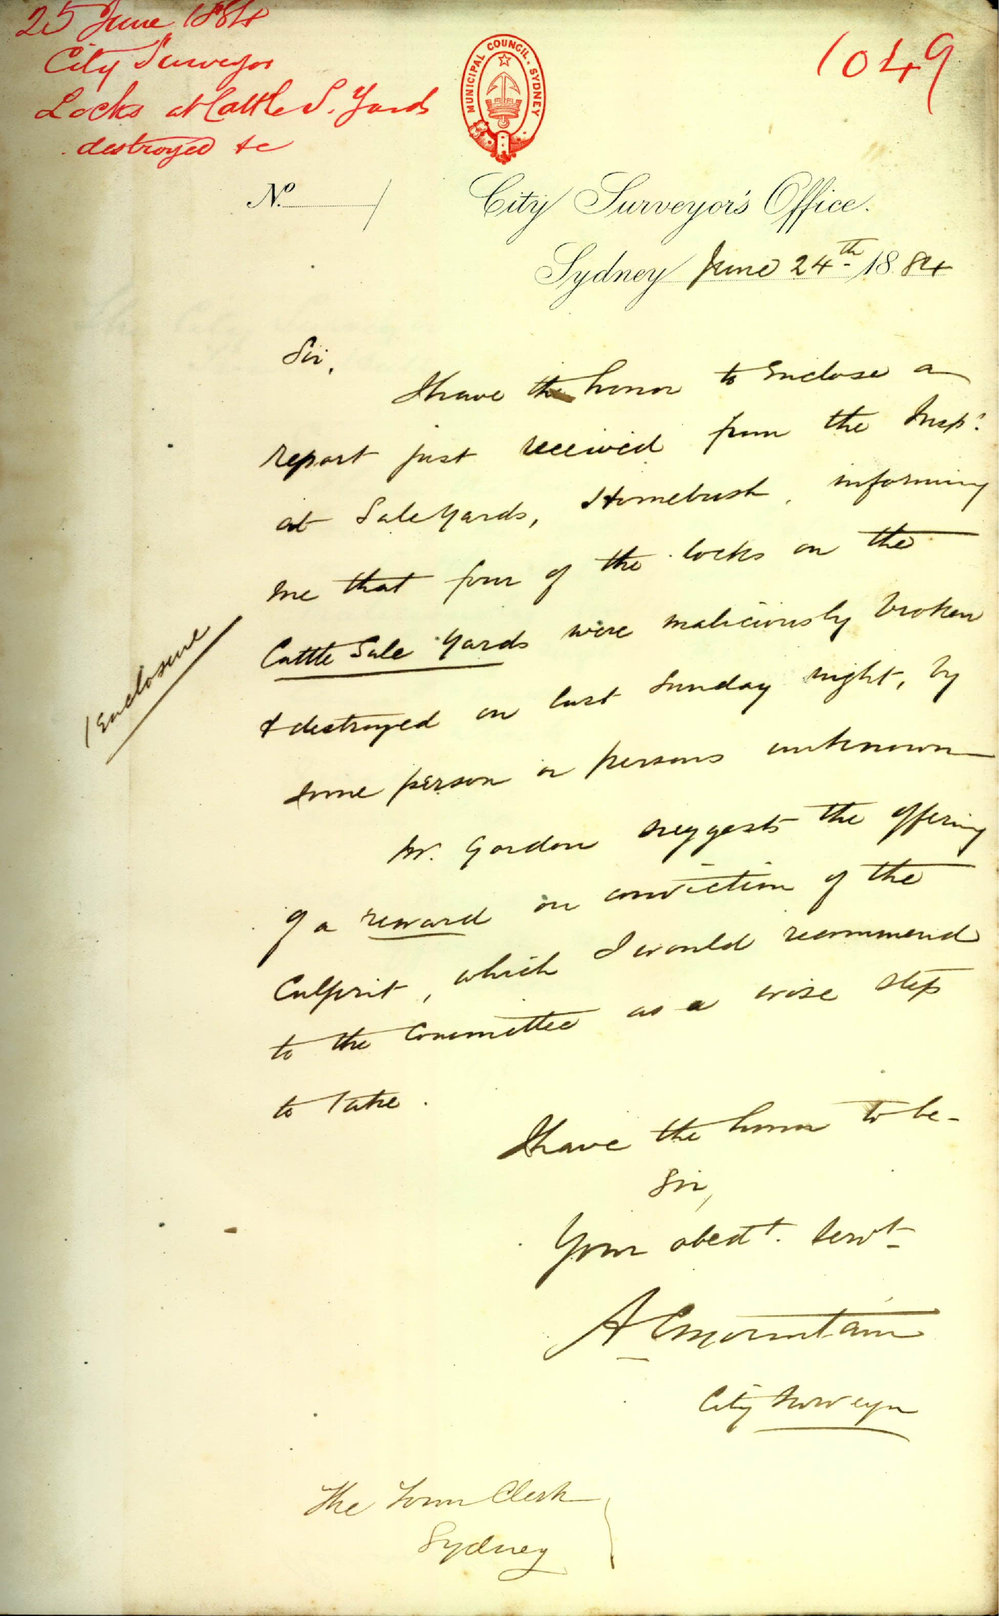 25 June 1884
City Surveyor
Locks at Cattle S. Yards
destroyed &c
1049
MUNICIPAL COUNCIL. SYDNEY
No.
City Surveyor's Office.
Sydney June 24th 1884
Sir,
I have the honor to enclose a
report just received from the Insp:
at Sale Yards, Homebush, informing
me that four of the locks on the
Cattle Sale Yards were maliciously broken
& destroyed on last Sunday night, by
some person or persons unknown
Enclosure
Mr. Gordon suggests the offering
of a reward on conviction of the
Culprit, which I would recommend
to the Committee as a wise step
to take.
I have the honor to be
Sir,
Your obedt. servt
A C Mountain
City Surveyor
The Town Clerk
Sydney